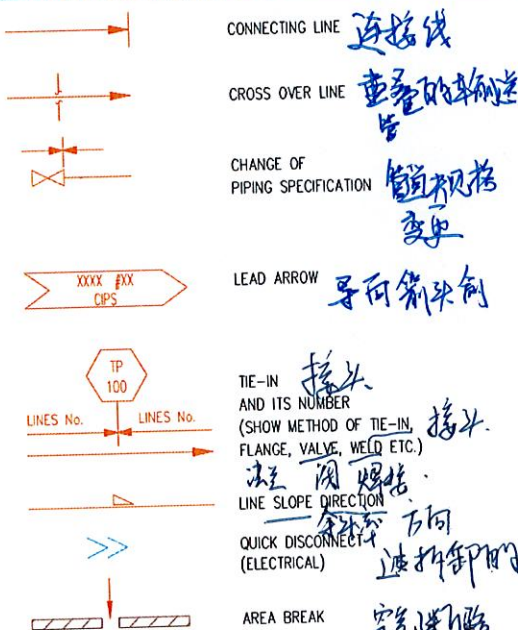 CONNECTING LINE 连接线
CROSS OVER LINE 重叠的输送
管
CHANGE OF
PIPING SPECIFICATION 管道规格
变更
XXXX #XX
CIPS
LEAD ARROW 导向箭头
TP
100
LINES No. LINES No.
TIE-IN 接头
AND ITS NUMBER
(SHOW METHOD OF TIE-IN, 接头.
FLANGE, VALVE, WELD ETC.)
法兰 阀 焊接.
LINE SLOPE DIRECTION
方向
QUICK DISCONNECT
(ELECTRICAL) 速拆卸的
AREA BREAK